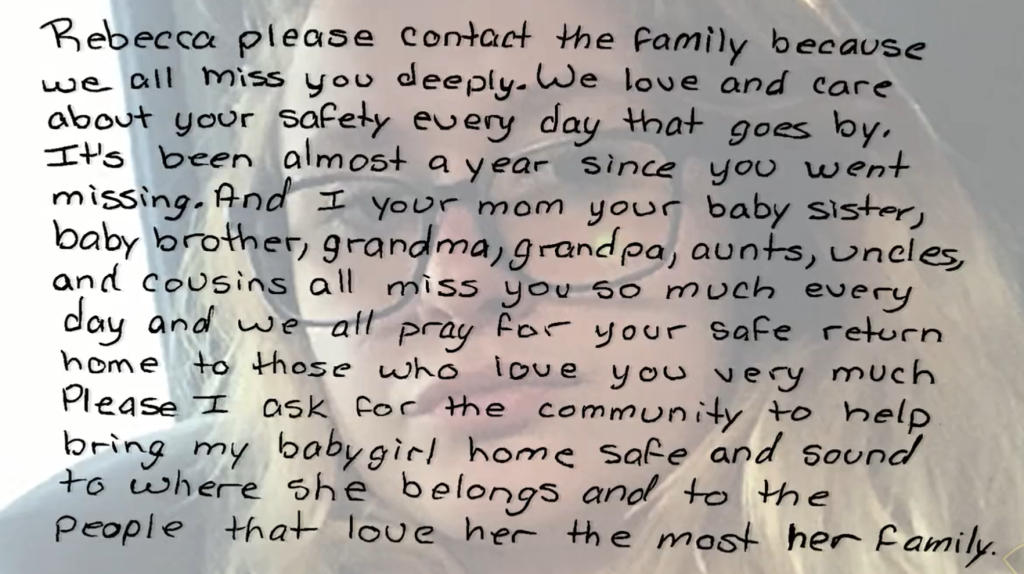 Rebecca please contact the family because
we all miss you deeply. We love and care
about your safety every day that goes by.
It's been almost a year since you went
missing. And I your mom your baby sister,
baby brother, grandma, grandpa, aunts, uncles,
and cousins all miss you so much every
day and we all pray for your safe return
home to those who love you very much
Please I ask for the community to help
bring my babygirl home safe and sound
to where she belongs and to the
people that love her the most her family.